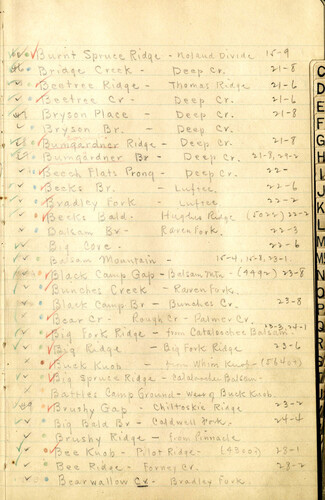 Burnt Spruce Ridge - Noland Divide 15-9
Bridge Creek - Deep Cr. 21-8
Beetree Ridge - Thomas Ridge 21-6
Beetree Cr - Deep Cr. 21-6
Bryson Place - Deep Cr. 21-8
Bryson Br. - Deep Cr.
Bumgardner Ridge - Deep Cr. 21-8
Bumgardner Br - Deep Cr. 21-8, 29-2
Beech Flats Prong - Deep Cr. 22-
Becks Br. - Luftee 22-6
Bradley Fork - Luftee 22-2
Becks Bald - Hughs Ridge (5022) 22-2
Balsam Br - Raven Fork. 22-3
Big Cove - 22-6
Balsam Mountain - 16-4, 16-8, 23-1
Black Camp Gap - Balsam Mtn - (4492) 23-8
Bunches Creek - Raven Fork.
Black Camp Br - Bunches Cr. 23-8
Bear Cr - Rough Cr - Palmer Cr.
Big Fork Ridge - from Cataloochee Balsam 23-3, 24-1
Big Ridge - Big Fork Ridge 23-6
Buck Knob - from Whim Knob -
Big Spruce Ridge - Cataloochee Balsam
Battles Camp Ground - west of Buck Knob.
Brushy Gap - Chiltoskie Ridge 23-2
Big Bald Br - Caldwell Fork 24-4
Brushy Ridge - from Pinnacle
Bee Knob - Pilot Ridge - (4300) 28-1
Bee Ridge - Forney Cr. 28-2
Bearwallow Cr - Bradley Fork.
C
D
E
F
G
H
I
J
K
L
M
Mc
N
O
P
Q
R
S
T